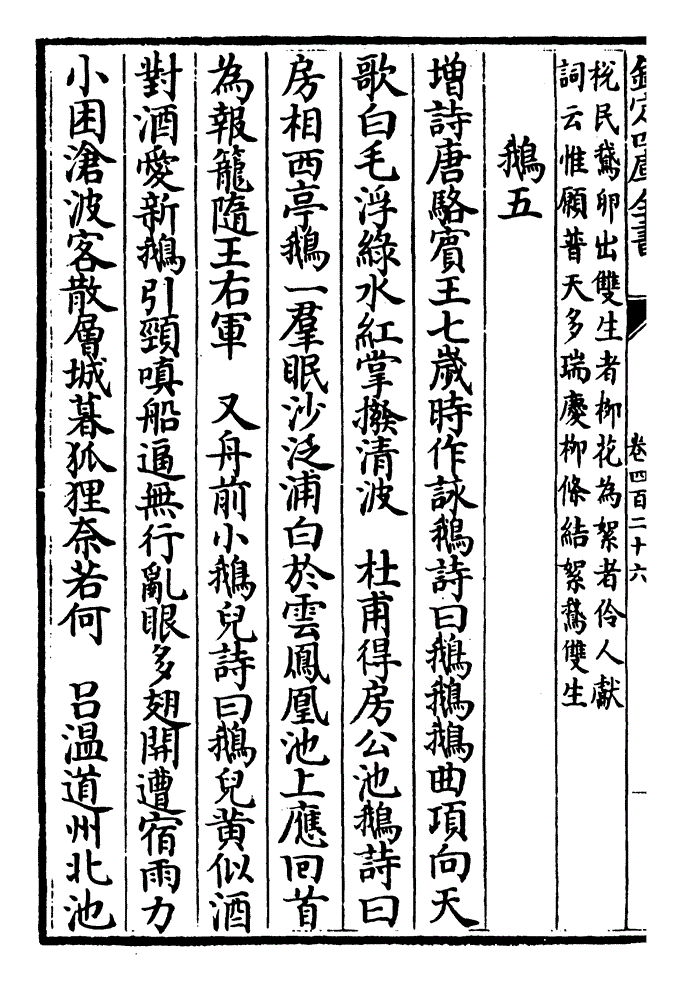 欽定四庫全書
卷四百二十六
税民鵞卵出雙生者柳花為絮者伶人獻
詞云惟願普天多瑞慶柳條結絮鵞雙生
鵝五
増詩唐駱賓王七歲時作詠鵝詩曰鵝鵝鵝曲項向天
歌白毛浮綠水紅掌撥清波　杜甫得房公池鵝詩曰
房相西亭鵝一羣眠沙泛浦白於雲鳳凰池上應回首
為報籠隨王右軍　又舟前小鵝兒詩曰鵝兒黄似酒
對酒愛新鵝引頸嗔船逼無行亂眼多翅開遭宿雨力
小困滄波客散層城暮狐狸奈若何　吕温道州北池